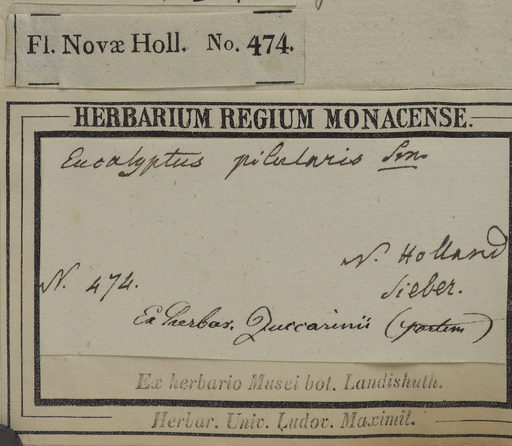 Fl. Novæ Holl. No. 474.
HERBARIUM REGIUM MONACENSE.
Eucalyptus pilularis Sm.
N. Holland
N. 474.
Sieber.
Ex herbar. Zuccarinii
Ex herbario Musei bot. Landishuth.
Herbar. Univ. Ludov. Maximil.